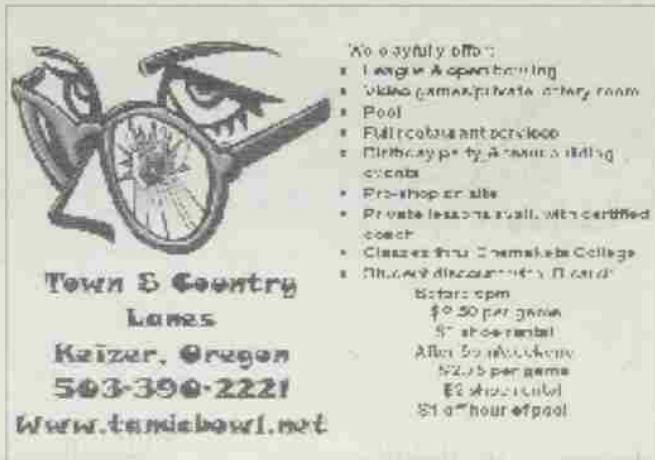 Town & Country
Lanes
Keizer, Oregon
503-390-2221
We playfully offer:
• League & open bowling
• Video games/private lottery room
• Pool
• Full restaurant services
• Birthday party & team building
events
• Pro-shop on site
• Private lessons avail. with certified
coach
• Classes thru Chemeketa College
• Student discount with ID card:
Before 6pm
per game
$1 shoe rental
After
per game
$2 shoe rental
$1 off hour of pool